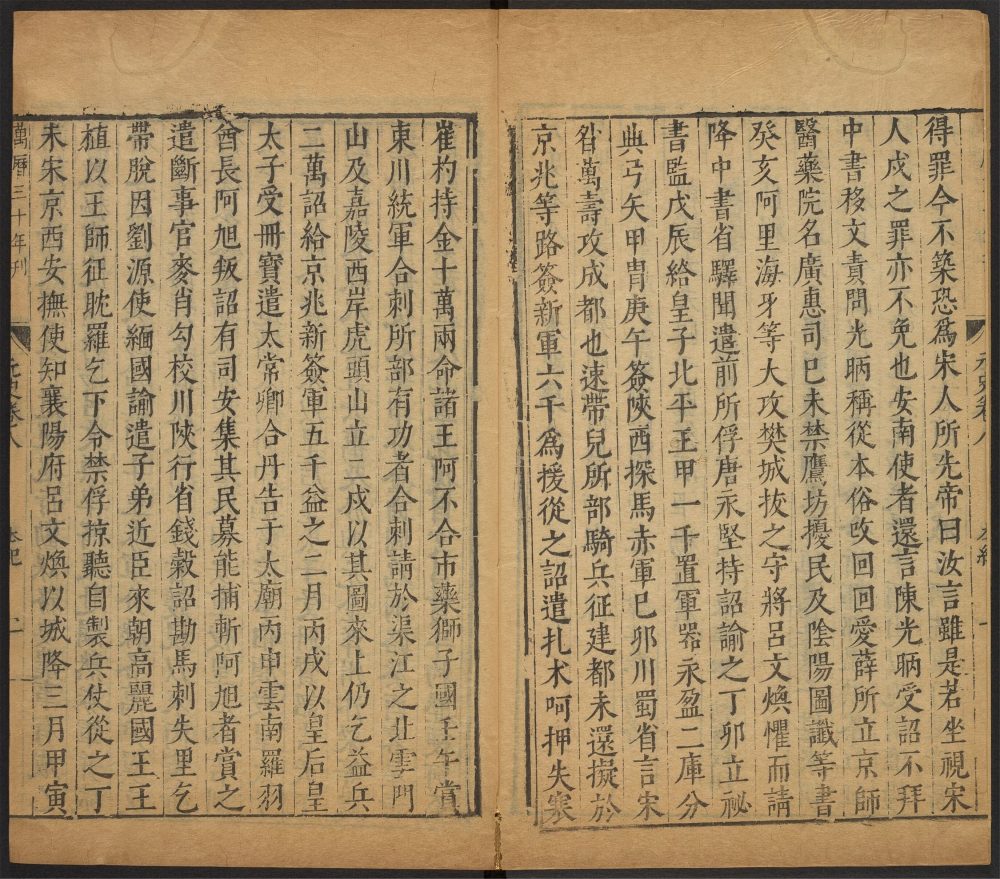 得罪今不築恐爲宋人所先帝曰汝言雖是若坐視宋
人戍之罪亦不免也安南使者還言陳光昞受詔不拜
中書移文責問光昞稱從本俗改回回愛薛所立京師
醫藥院名廣惠司己未禁鷹坊擾民及陰陽圖讖等書
癸亥阿里海牙等大攻樊城拔之守將呂文煥懼而請
降中書省驛聞遣前所俘唐永堅持詔諭之丁卯立祕
書監戊辰給皇子北平王甲一千置軍器永盈二庫分
典弓矢甲冑庚午簽陝西探馬赤軍己卯川蜀省言宋
昝萬壽攻成都也速帶兒所部騎兵征建都未還擬於
京兆等路簽新軍六千爲援從之詔遣扎朮呵押失寒
崔杓持金十萬兩命諸王阿不合市藥獅子國壬午賞
東川統軍合剌所部有功者合剌請於渠江之北雲門
山及嘉陵西岸虎頭山立二戍以其圖來上仍乞益兵
二萬詔給京兆新簽軍五千益之二月丙戌以皇后皇
太子受冊寶遣太常卿合丹告于太廟丙申雲南羅羽
酋長阿旭叛詔有司安集其民募能捕斬阿旭者賞之
遣斷事官麥肖勾校川陝行省錢穀詔勘馬剌失里乞
帶脫因劉源使緬國諭遣子弟近臣來朝高麗國王王
植以王師征耽羅乞下令禁俘掠聽自製兵仗從之丁
未宋京西安撫使知襄陽府呂文煥以城降三月甲寅
萬曆三十年刊
元史卷八
本紀
二